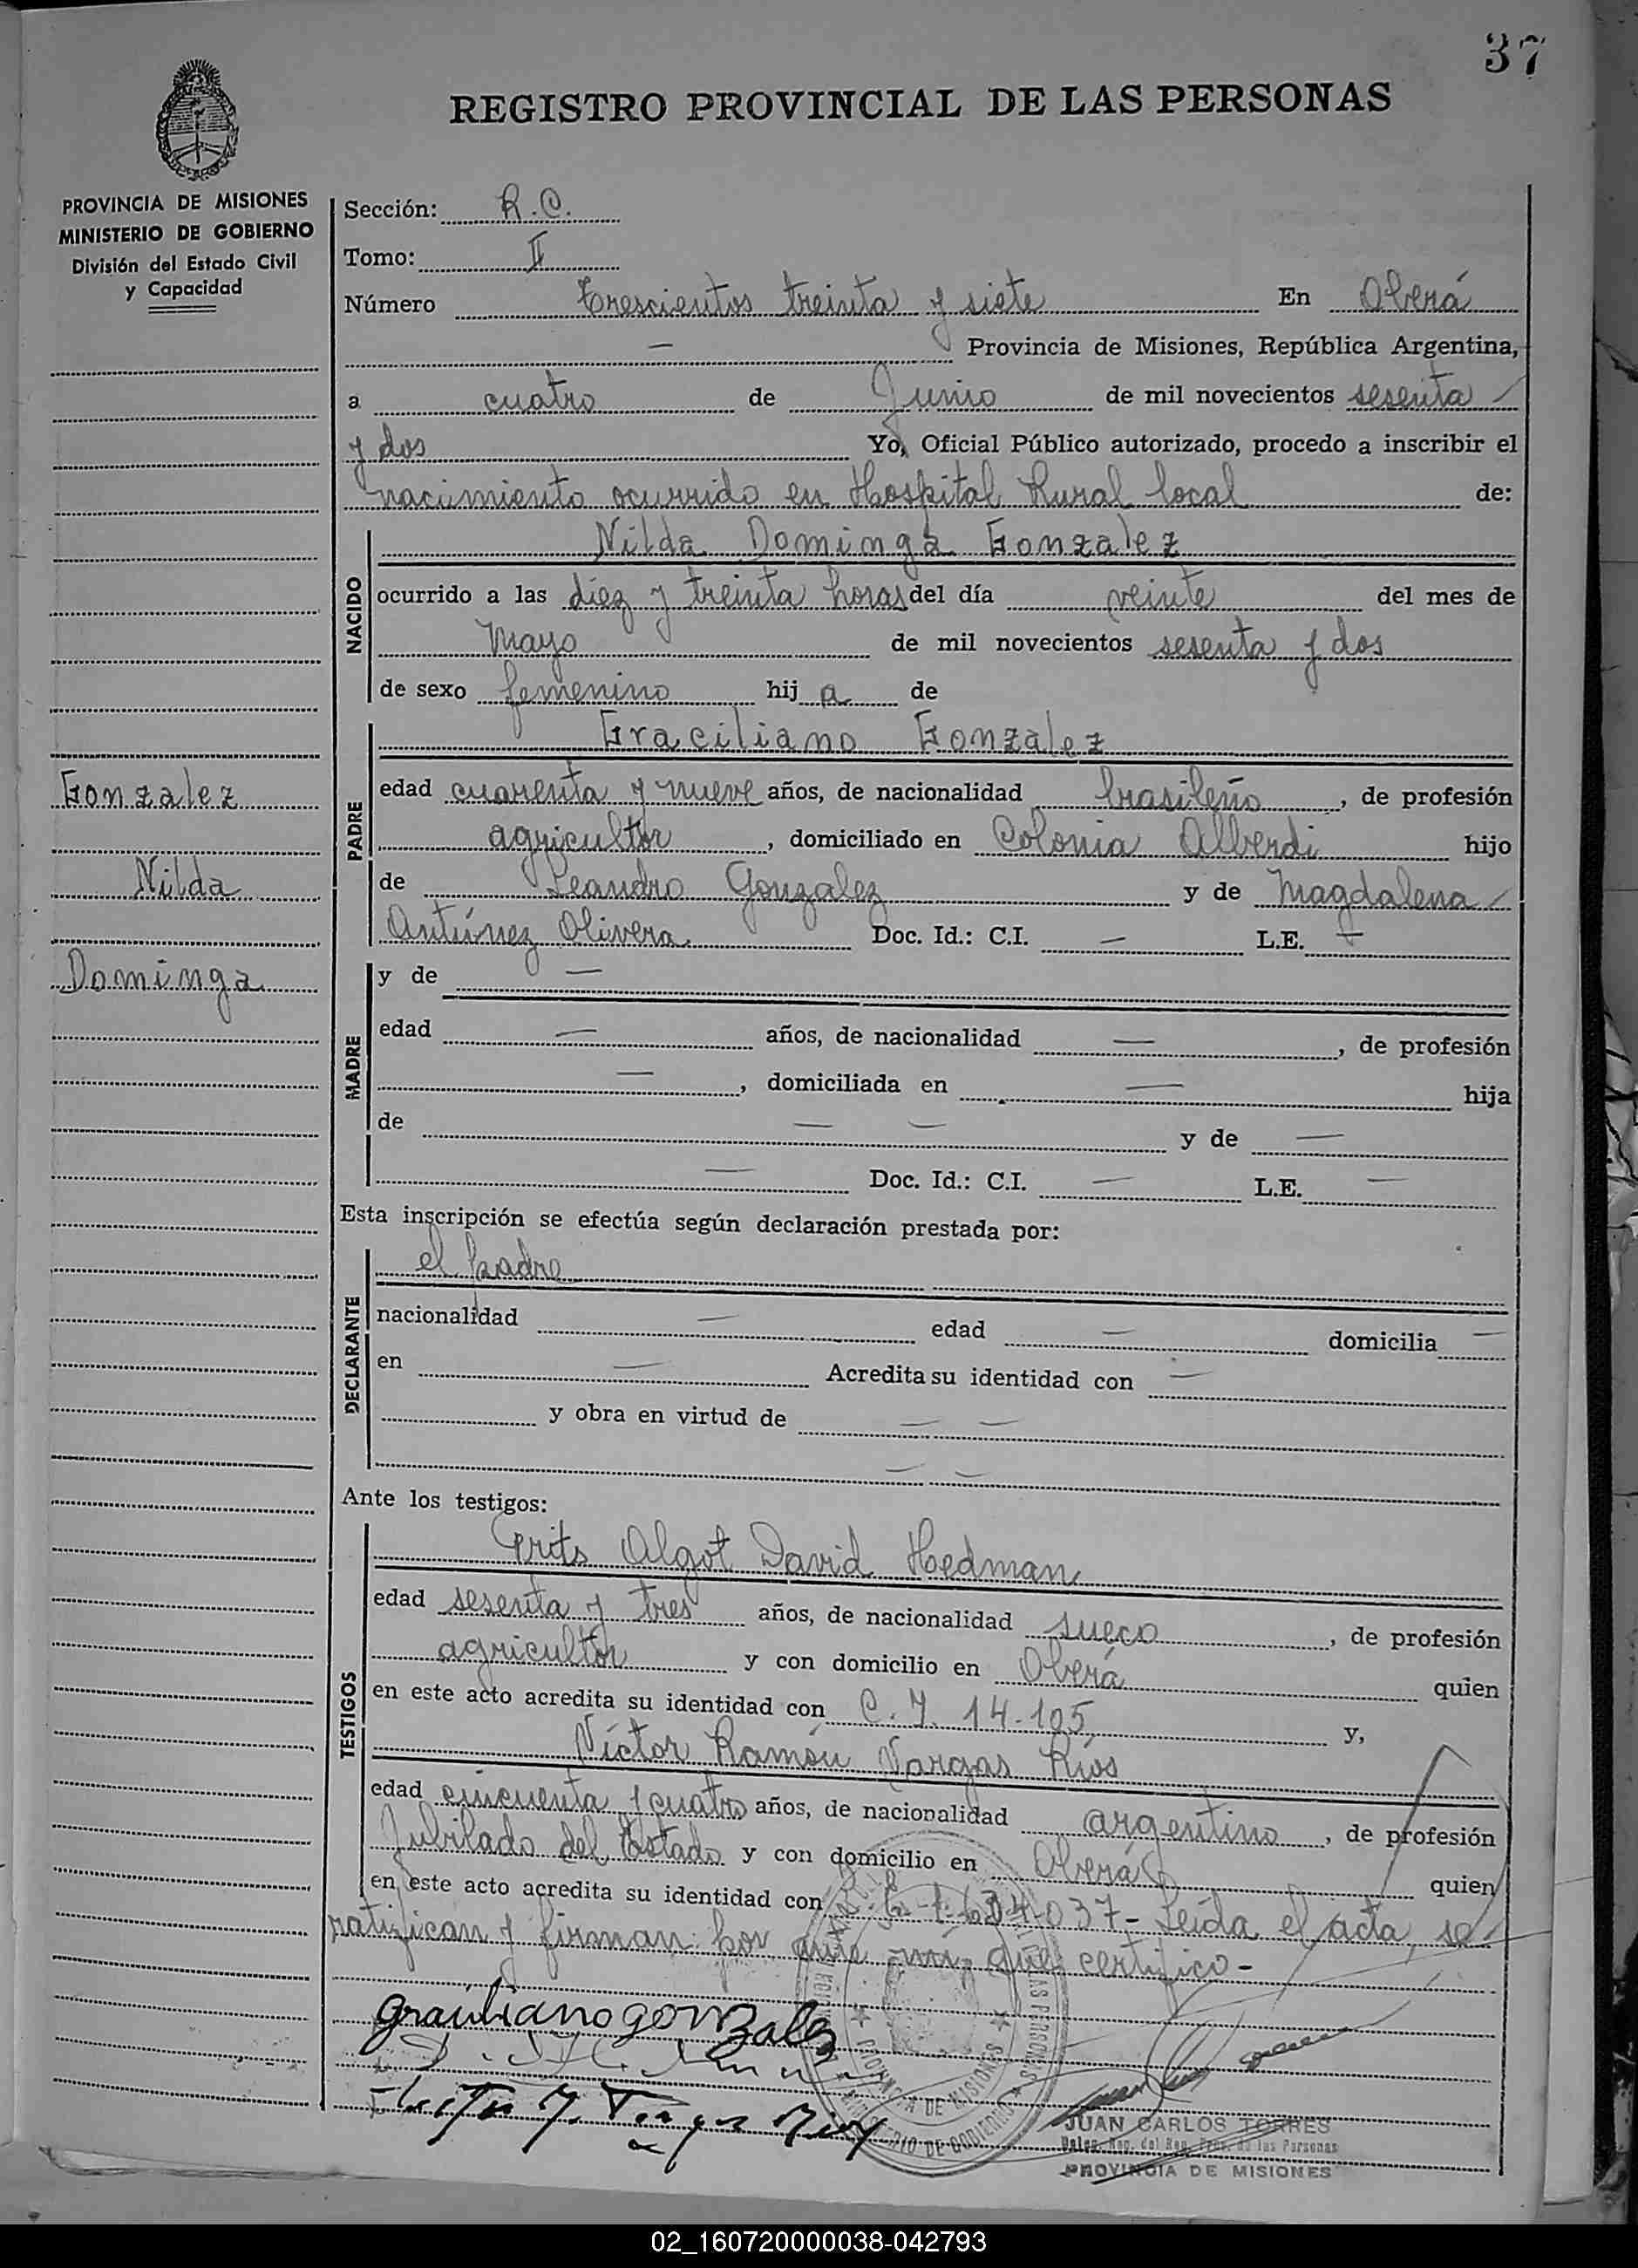 37
REGISTRO PROVINCIAL DE LAS PERSONAS
PROVINCIA DE MISIONES
MINISTERIO DE GOBIERNO
División del Estado Civil
y Capacidad
Gonzalez
Nilda
Dominga
Sección: R.C.
Tomo: II
Número Trescientos treinta y siete En Oberá
— Provincia de Misiones, República Argentina,
a cuatro de Junio de mil novecientos sesenta
y dos Yo, Oficial Público autorizado, procedo a inscribir el
nacimiento ocurrido en Hospital Rural local de:
NACIDO
Nilda Dominga Gonzalez
ocurrido a las diez y treinta horas del día veinte del mes de
Mayo de mil novecientos sesenta y dos
de sexo femenino hij a de
PADRE
Graciliano Gonzalez
edad cuarenta y nueve años, de nacionalidad brasileño, de profesión
agricultor, domiciliado en Colonia Alberdi hijo
de Leandro Gonzalez y de Magdalena
Antúnez Olivera Doc. Id.: C.I. — L.E. —
MADRE
y de —
edad — años, de nacionalidad —, de profesión
—, domiciliada en — hija
de — — y de —
— Doc. Id.: C.I. — L.E. —
Esta inscripción se efectúa según declaración prestada por:
DECLARANTE
el padre
nacionalidad — edad — domicilia —
en — Acredita su identidad con —
y obra en virtud de — —
— —
Ante los testigos:
TESTIGOS
Frits Algot David Hedman
edad sesenta y tres años, de nacionalidad sueco, de profesión
agricultor y con domicilio en Oberá quien
en este acto acredita su identidad con C.I. 14.105 y,
Víctor Ramón Vargas Ríos
edad cincuenta y cuatro años, de nacionalidad argentino, de profesión
Jubilado del Estado y con domicilio en Oberá quien
en este acto acredita su identidad con 1.634.037- Leída el acta, se
ratifican y firman por ante mí, que certifico-
graciliano gonzalez
PROVINCIA DE MISIONES
MINISTERIO DE GOBIERNO
JUAN CARLOS TORRES
Deleg. Reg. del Reg. Prov. de las Personas
PROVINCIA DE MISIONES
02_160720000038-042793